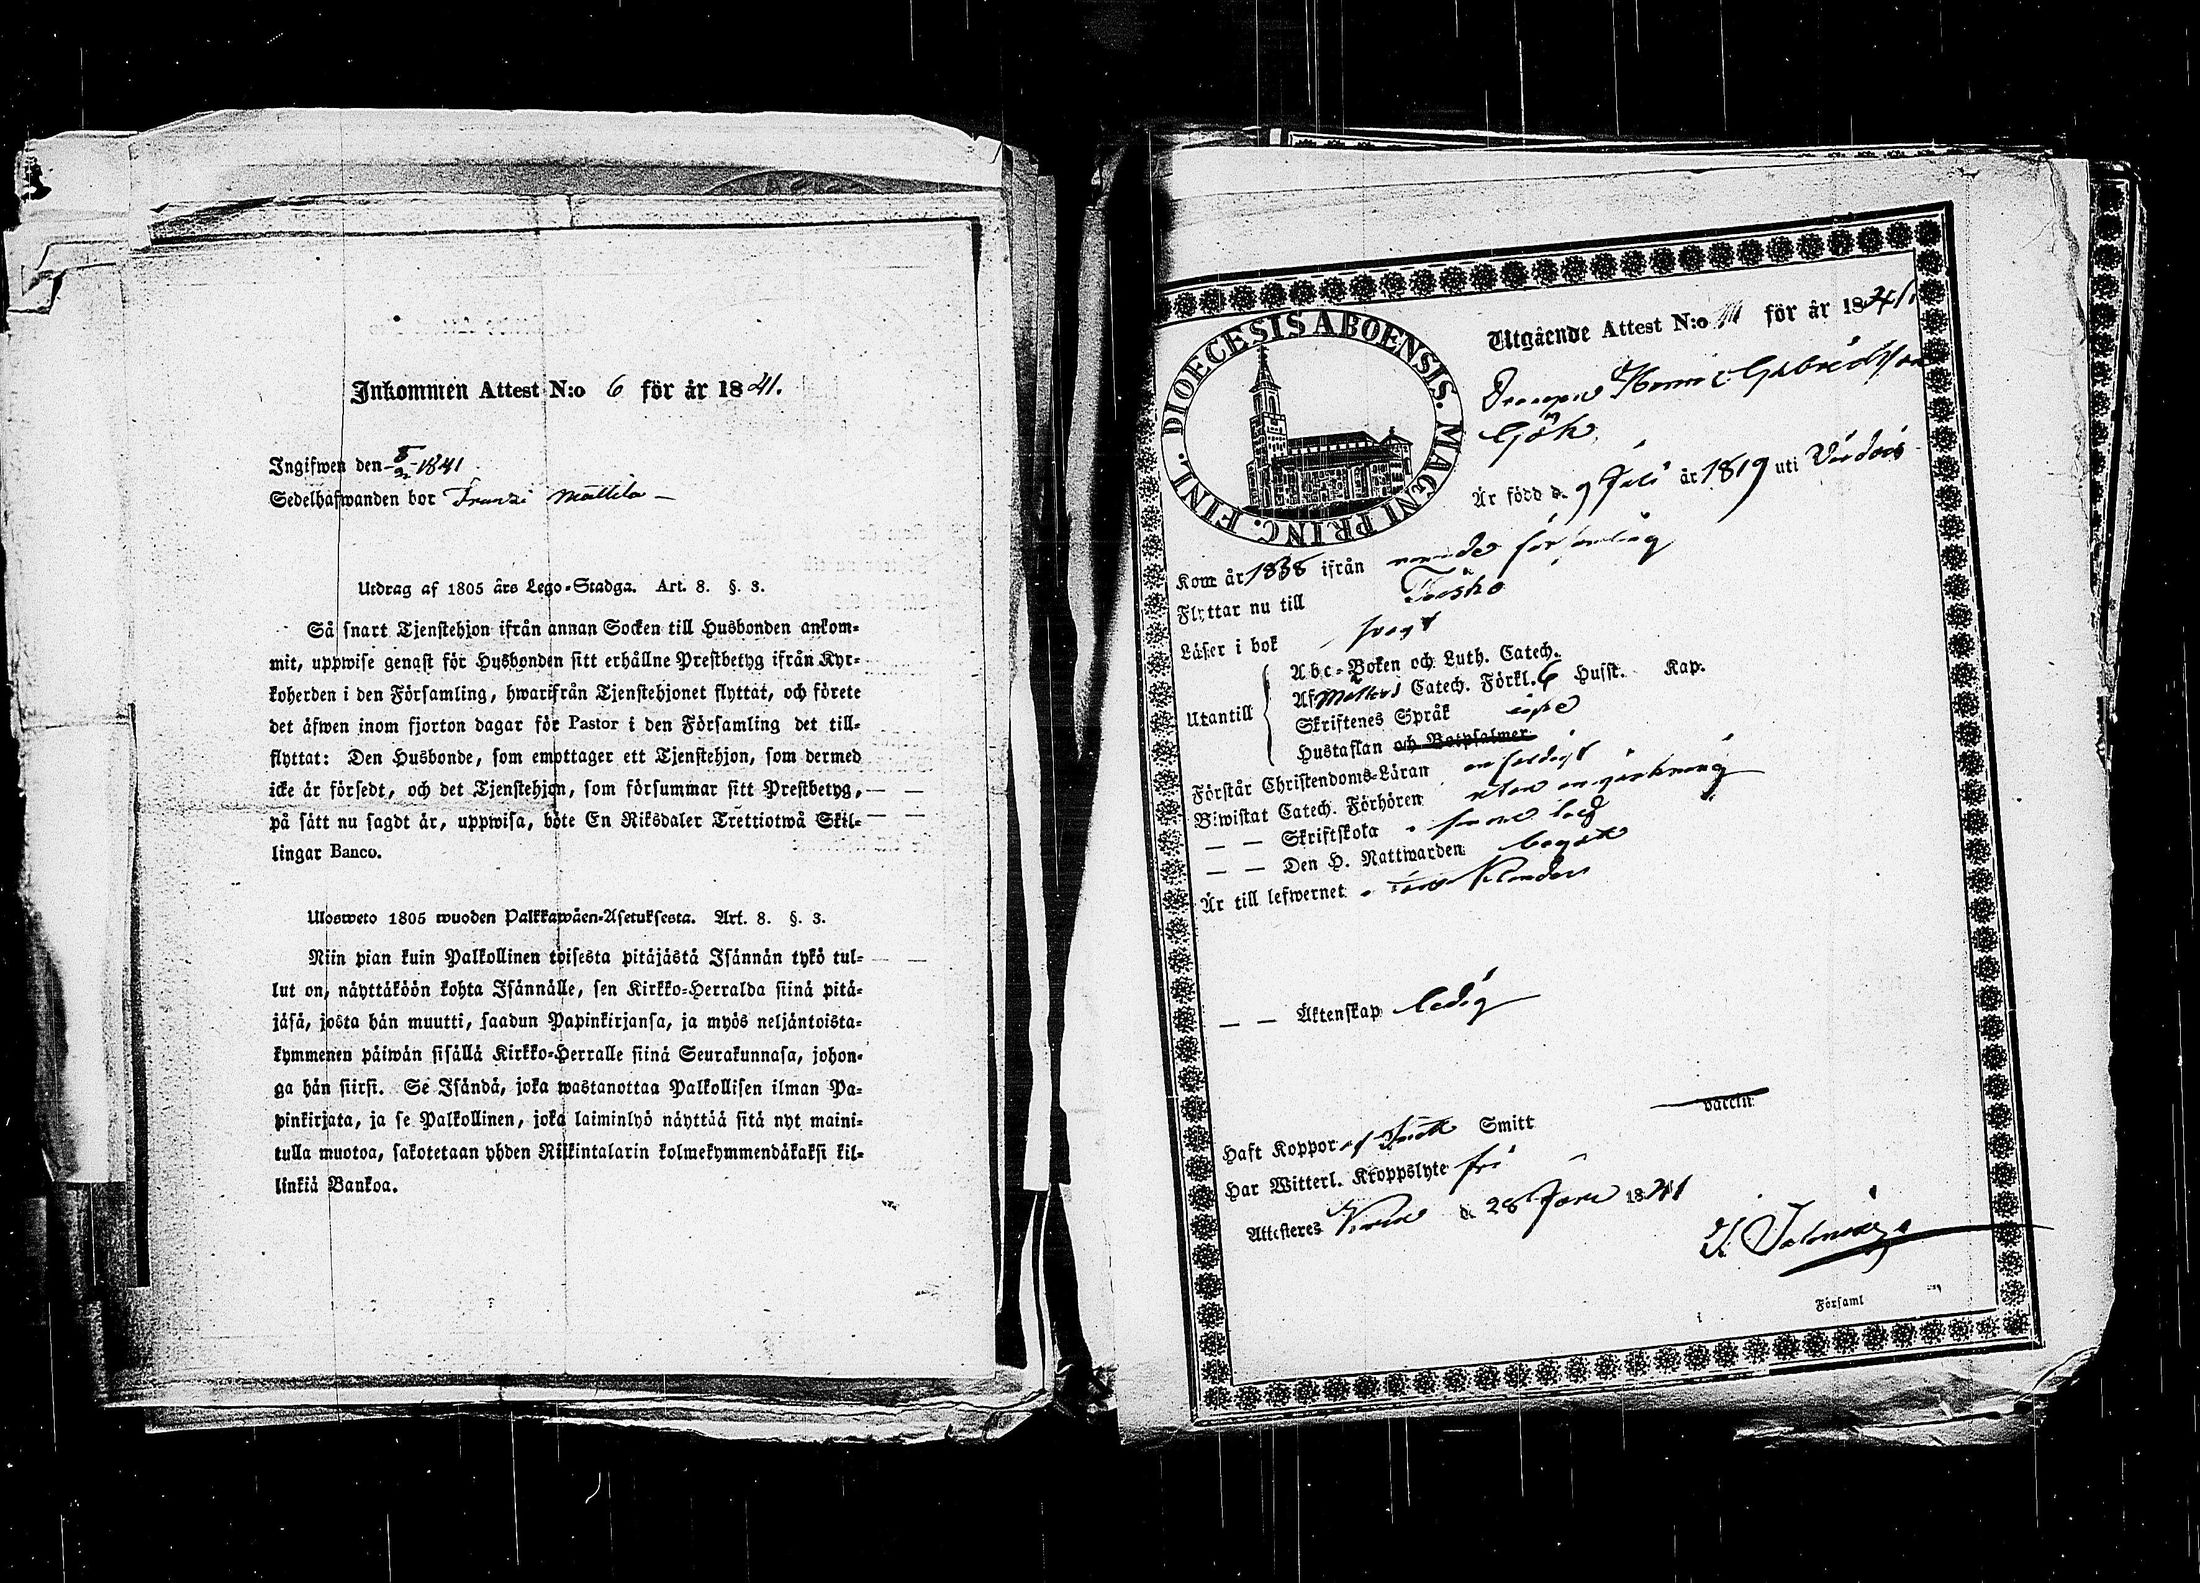 Inkommen Attest N:o 6 för år 1841.
Ingifwen den 8/2 1841
Sedelhafwanden bor Mattila
Utdrag af 1805 års Lego-Stadga. Art. 8. §. 3.
Så snart Tjenstehjon ifrån annan Socken till Husbonden ankom-
mit, uppwise genast för Husbonden sitt erhållne Prestbetyg ifrån Kyr-
koherden i den Församling, hwarifrån Tjenstehjonet flyttat, och förete
det äfwen inom fjorton dagar för Pastor i den Församling det till-
flyttat: Den Husbonde, som emottager ett Tjenstehjon, som dermed
icke är försedt, och det Tjenstehjon, som försummar sitt Prestbetyg,
på sätt nu sagdt är, uppwisa, böte En Riksdaler Trettiotwå Skil-
lingar Banco.
Ulosweto 1805 wuoden Palkkawäen-Asetuksesta. Art. 8. §. 3.
Niin pian kuin Palkollinen toisesta pitäjästä Isännän tykö tul-
lut on, näyttäköön kohta Isännälle, sen Kirkko-Herralda siinä pitä-
jäsä, josta hän muutti, saadun Papinkirjansa, ja myös neljäntoista-
kymmenen päiwän sisällä Kirkko-Herralle siinä Seurakunnasa, johon-
ga hän siirsi. Se Isändä, joka wastanottaa Palkollisen ilman Pa-
pinkirjata, ja se Palkollinen, joka laiminlyö näyttää sitä nyt maini-
tulla muotoa, sakotetaan yhden Riikintalarin kolmekymmendäkaksi kil-
linkiä Bankoa.
DIOECESIS ABOENSIS. MAGNI PRINC. FINL.
Utgående Attest N:o för år 1841.
Drengen Henric Gabrielsson
Gök
Är född d. 9 Juli år 1819 uti Virdois
Kom år 1838 ifrån församling
Flyttar nu till Teisko
Läser i bok svagt
Utantill
Abc-Boken och Luth. Catech.
Af Catech. Förkl. 6 Husst. Kap.
Skriftenes Språk
Hustaflan och Botpsalmer
Förstår Christendoms-Läran enfaldigt
Biwistat Catech. Förhören utan anmärkning
— — Skriftskola
— — Den H. Nattwarden begått
Är till lefwernet
— — Äktenskap ledig
vaccin
Haft Koppor Smitt
Har Witterl. Kroppslyte fri
Attesteres d. 28 Jan 1841
Församl